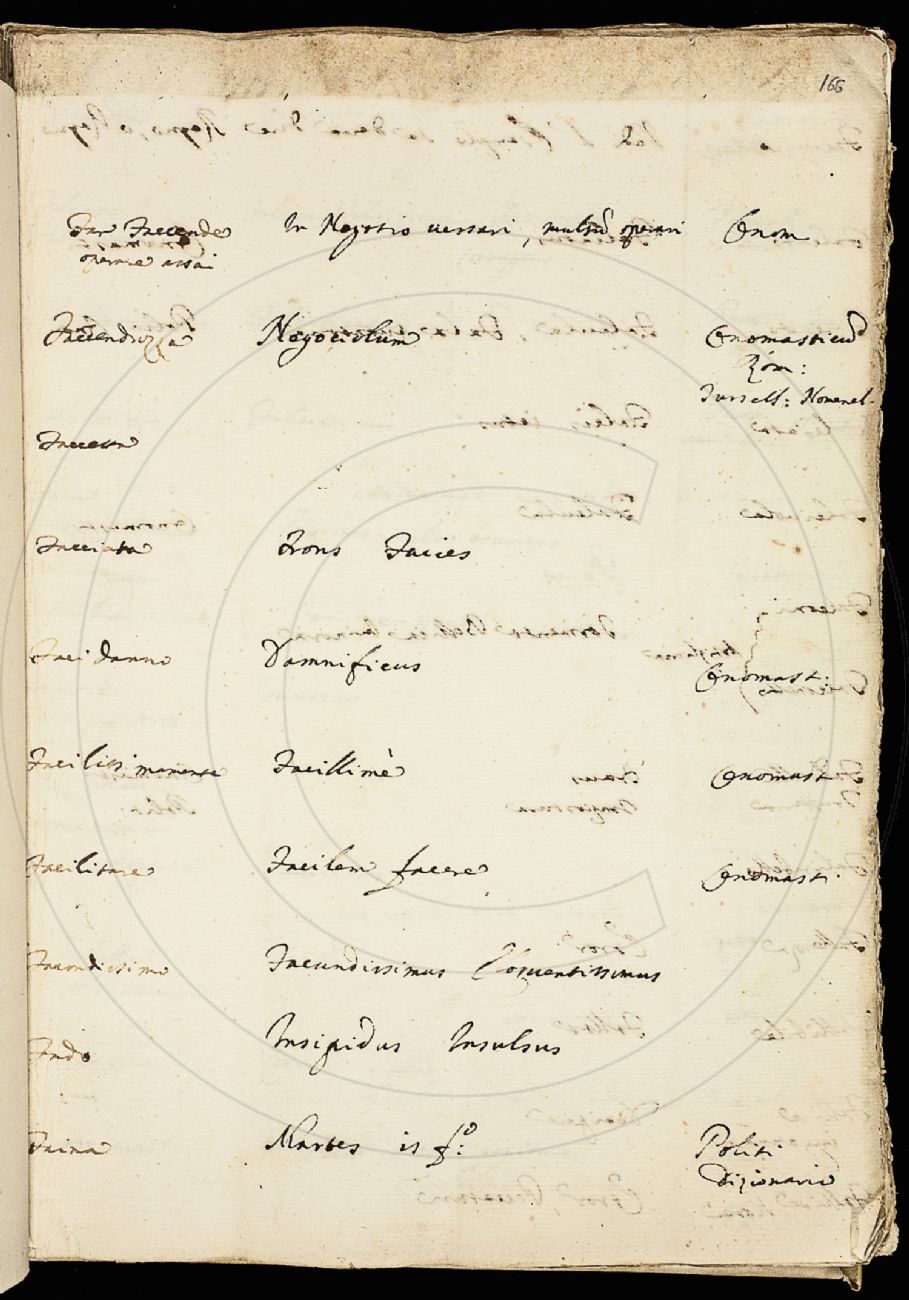 166
Far Facende In Negotio versari, multũ operari Onom
operare assai
Facendiozza Negociolum Onomasticũ
Rom:
Tursell: Nomencl.
Facciata Frons Facies
Faci danno Damnificus Onomast:
Facilissimamente Facillimè Onomast
Facilitare Facilem facere Onomast.
Facondissimo Facundissimus Eloquentissimus
Fado Insipidus Insulsus
Faina Martes is f:
Politi
Dizionario